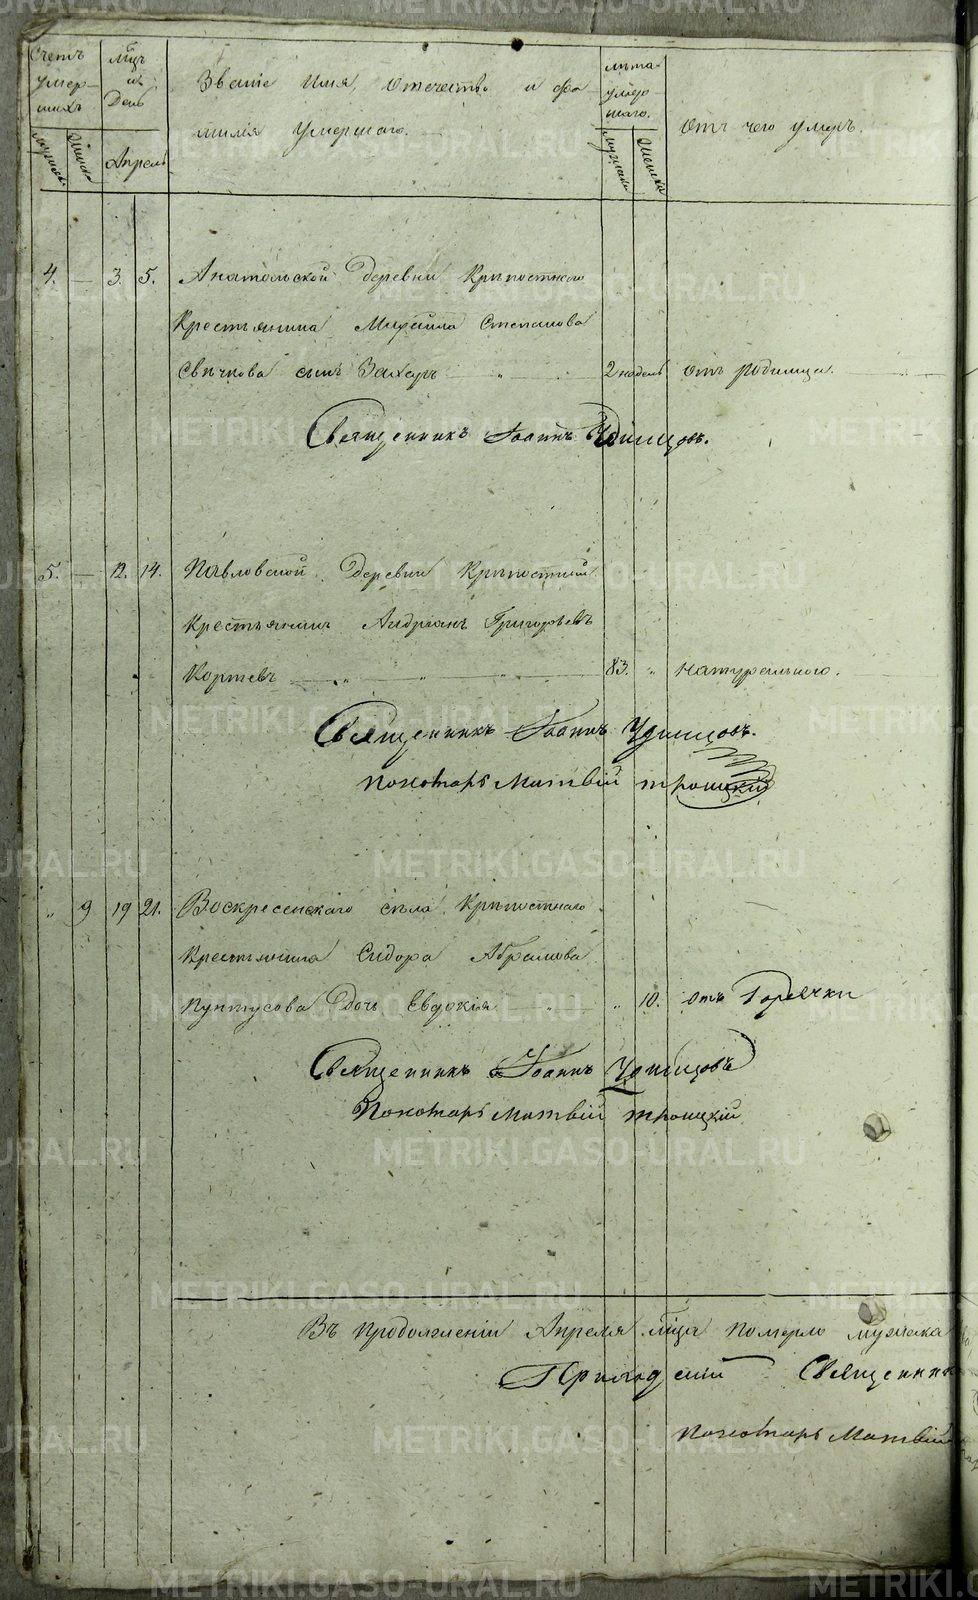 Счетъ умер- шихъ
Мѣц. и День
Званіе Имя, Отечество и фа-
милія Умершаго.
лѣта умер- шаго.
Отъ чего умеръ.
Апрель
4. — 3. 5. Анатольской Деревни Крѣпостнаго
Крестьянина Михайла Степанова
Свѣчкова сынъ Захаръ 2 недель отъ родимца.
Священникъ Іоаннъ Удинцовъ.
5. — 12. 14. Павловской Деревни Крѣпостный
Крестьянинъ Андріанъ Григорьевъ
83. натурального.
Священникъ Іоаннъ Удинцовъ.
пономарь Матвій троицкій
" 9 19 21. Воскресенскаго села Крѣпостнаго
Крестьянина Сидора Абрамова
дочь Евдокія " 10. отъ Горячки
Священникъ Іоаннъ Удинцовъ
Пономарь Матвій троицкій
Въ продолженіи Апреля мѣца померло мужеска
Священник
пономарь Матвій
METRIKI.GASO-URAL.RU